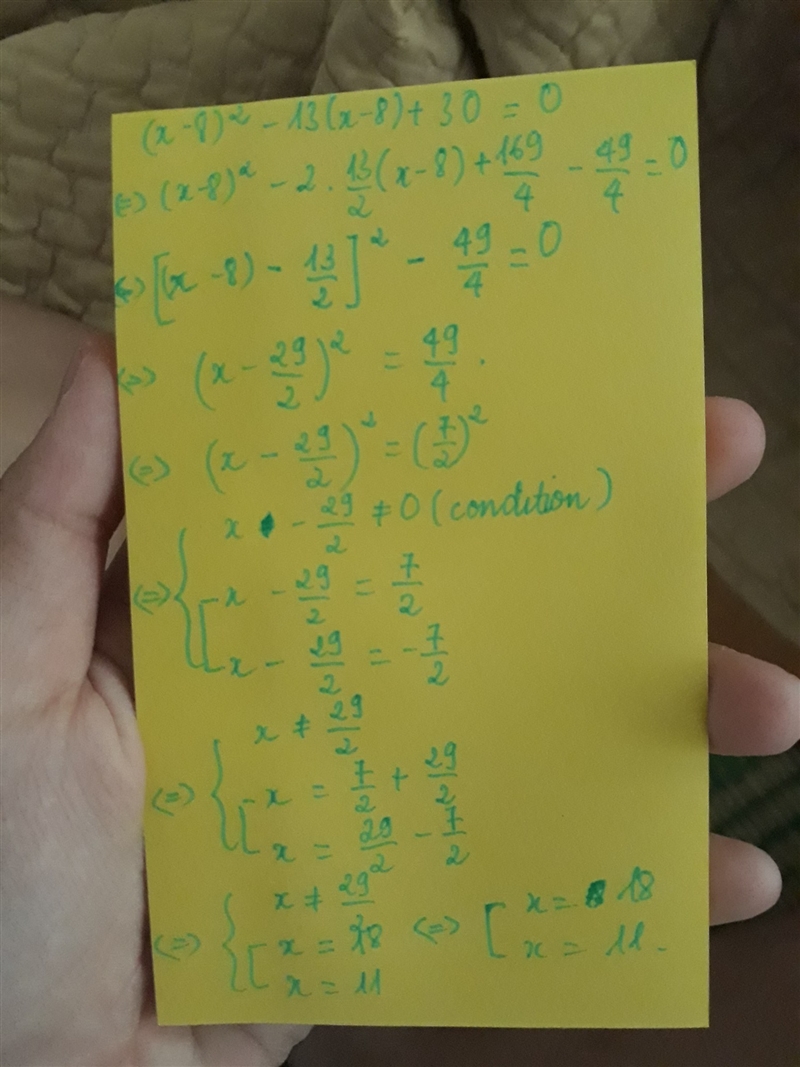 (x-8)² - 13(x-8) + 30 = 0
⇔ (x-8)² - 2 . 13/2 (x-8) + 169/4 - 49/4 = 0
⇔ [(x-8) - 13/2]² - 49/4 = 0
⇔ (x - 29/2)² = 49/4 .
⇔ (x - 29/2)² = (7/2)²
⇔ { x - 29/2 ≠ 0 (condition)
[ x - 29/2 = 7/2
x - 29/2 = -7/2
⇔ { x ≠ 29/2
[ x = 7/2 + 29/2
x = 29/2 - 7/2
⇔ { x ≠ 29/2
[ x = 18 ⇔ [ x = 18
x = 11 x = 11 .